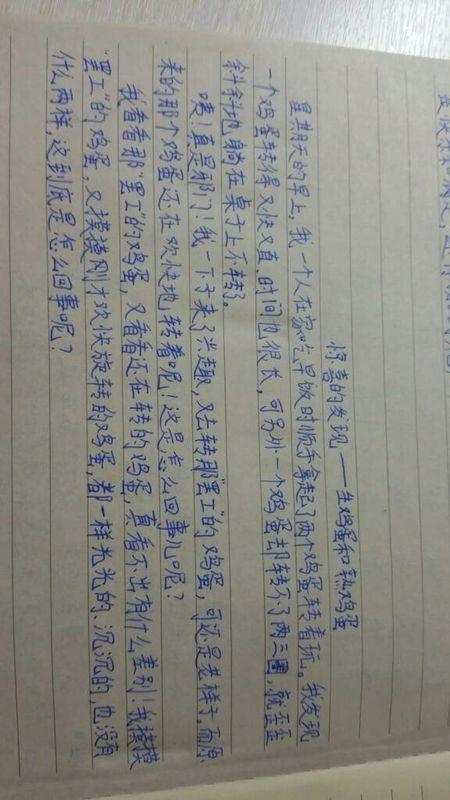 惊喜的发现——生鸡蛋和熟鸡蛋
星期天的早上，我一个人在家吃早饭时顺手拿起了两个鸡蛋转着玩。我发现
一个鸡蛋转得又快又直，时间也很长，可另外一个鸡蛋却转不了两三圈，就歪歪
斜斜地躺在桌子上不转了。
咦！真是邪门！我一下子来了兴趣，又去转那"罢工"的鸡蛋，可还是老样子。而原
来的那个鸡蛋还在欢快地转着呢！这是怎么回事儿呢？
我看看那"罢工"的鸡蛋，又看看还在转的鸡蛋，真看不出有什么差别！我摸摸
"罢工"的鸡蛋，又摸摸刚才欢快旋转的鸡蛋，都一样光光的、沉沉的，也没有
什么两样，这到底是怎么回事呢？